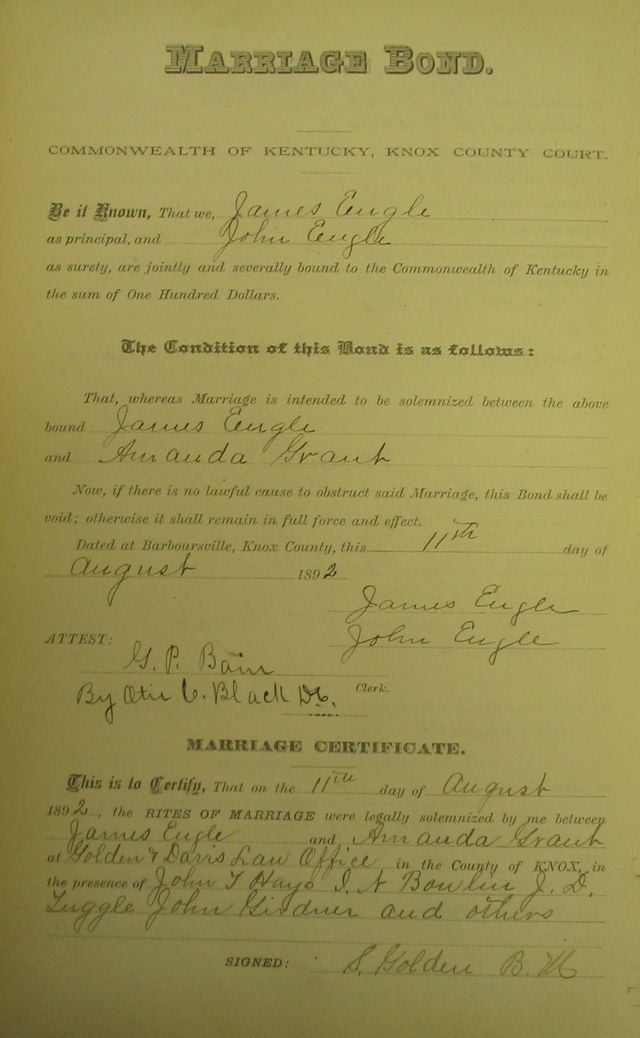 MARRIAGE BOND.
COMMONWEALTH OF KENTUCKY, KNOX COUNTY COURT.
Be it Known, That we, James Engle
as principal, and John Engle
as surety, are jointly and severally bound to the Commonwealth of Kentucky in
the sum of One Hundred Dollars.
The Condition of this Bond is as follows:
That, whereas Marriage is intended to be solemnized between the above
bound James Engle
and Amanda Grant
Now, if there is no lawful cause to obstruct said Marriage, this Bond shall be
void; otherwise it shall remain in full force and effect.
Dated at Barboursville, Knox County, this 11th day of
August 1892
James Engle
John Engle
ATTEST:
G. P. Bain
By Otis C. Black D.C. Clerk.
MARRIAGE CERTIFICATE.
This is to Certify, That on the 11th day of August
1892, the RITES OF MARRIAGE were legally solemnized by me between
James Engle and Amanda Grant
at Golden & Davis Law Office in the County of KNOX, in
the presence of John T Hays I. N Bowlin J. D.
Tuggle John Girdner and others
SIGNED: S. Golden B. M